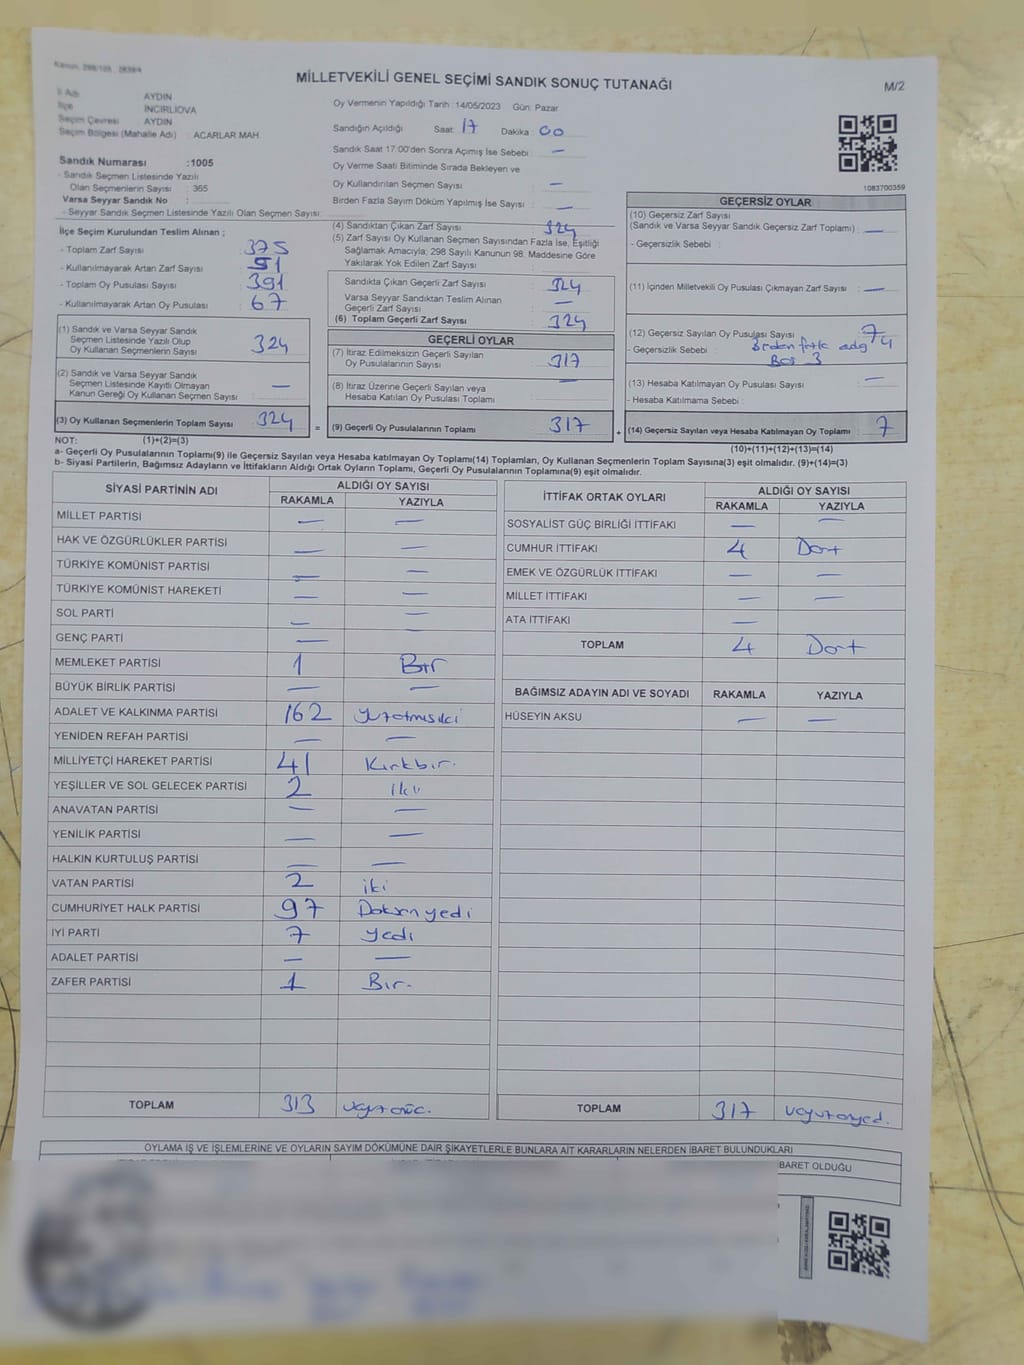 MİLLETVEKİLİ GENEL SEÇİMİ SANDIK SONUÇ TUTANAĞI
M/2
İl Adı AYDIN
İlçe İNCİRLİOVA
Seçim Çevresi AYDIN
Seçim Bölgesi (Mahalle Adı) : ACARLAR MAH.
Oy Vermenin Yapıldığı Tarih :14/05/2023 Gün: Pazar
Sandığın Açıldığı Saat: 17 Dakika : 00
Sandık Saat 17:00'den Sonra Açımış İse Sebebi : —
Oy Verme Saati Bitiminde Sırada Bekleyen ve
Oy Kullandırılan Seçmen Sayısı : —
Birden Fazla Sayım Döküm Yapılmış İse Sayısı : —
1083700359
Sandık Numarası :1005
- Sandık Seçmen Listesinde Yazılı
Olan Seçmenlerin Sayısı : 365
Varsa Seyyar Sandık No :
- Seyyar Sandık Seçmen Listesinde Yazılı Olan Seçmen Sayısı:
İlçe Seçim Kurulundan Teslim Alınan ;
- Toplam Zarf Sayısı : 375
- Kullanılmayarak Artan Zarf Sayısı : 51
- Toplam Oy Pusulası Sayısı : 391
- Kullanılmayarak Artan Oy Pusulası : 67
(1) Sandık ve Varsa Seyyar Sandık
Seçmen Listesinde Yazılı Olup
Oy Kullanan Seçmenlerin Sayısı : 324
(2) Sandık ve Varsa Seyyar Sandık
Seçmen Listesinde Kayıtlı Olmayan
Kanun Gereği Oy Kullanan Seçmen Sayısı : —
(3) Oy Kullanan Seçmenlerin Toplam Sayısı 324
(4) Sandıktan Çıkan Zarf Sayısı : 324
(5) Zarf Sayısı Oy Kullanan Seçmen Sayısından Fazla İse, Eşitliği
Sağlamak Amacıyla; 298 Sayılı Kanunun 98. Maddesine Göre
Yakılarak Yok Edilen Zarf Sayısı :
Sandıkta Çıkan Geçerli Zarf Sayısı : 324
Varsa Seyyar Sandıktan Teslim Alınan
Geçerli Zarf Sayısı : —
(6) Toplam Geçerli Zarf Sayısı : 324
GEÇERLİ OYLAR
(7) İtiraz Edilmeksizin Geçerli Sayılan
Oy Pusulalarının Sayısı : 317
(8) İtiraz Üzerine Geçerli Sayılan veya
Hesaba Katılan Oy Pusulası Toplamı : —
= (9) Geçerli Oy Pusulalarının Toplamı 317
GEÇERSİZ OYLAR
(10) Geçersiz Zarf Sayısı
(Sandık ve Varsa Seyyar Sandık Geçersiz Zarf Toplamı) : —
- Geçersizlik Sebebi :
(11) İçinden Milletvekili Oy Pusulası Çıkmayan Zarf Sayısı : —
(12) Geçersiz Sayılan Oy Pusulası Sayısı : 7
- Geçersizlik Sebebi : Birden fazla aday 4
Boş 3
(13) Hesaba Katılmayan Oy Pusulası Sayısı : —
- Hesaba Katılmama Sebebi :
+ (14) Geçersiz Sayılan veya Hesaba Katılmayan Oy Toplamı : 7
NOT: (1)+(2)=(3)
(10)+(11)+(12)+(13)=(14)
a- Geçerli Oy Pusulalarının Toplamı(9) ile Geçersiz Sayılan veya Hesaba katılmayan Oy Toplamı(14) Toplamları, Oy Kullanan Seçmenlerin Toplam Sayısına(3) eşit olmalıdır. (9)+(14)=(3)
b- Siyasi Partilerin, Bağımsız Adayların ve İttifakların Aldığı Ortak Oyların Toplamı, Geçerli Oy Pusulalarının Toplamına(9) eşit olmalıdır.
SİYASİ PARTİNİN ADI ALDIĞI OY SAYISI
RAKAMLA YAZIYLA
MİLLET PARTİSİ — —
HAK VE ÖZGÜRLÜKLER PARTİSİ — —
TÜRKİYE KOMÜNİST PARTİSİ — —
TÜRKİYE KOMÜNİST HAREKETİ — —
SOL PARTİ — —
GENÇ PARTİ —
MEMLEKET PARTİSİ 1 Bir
BÜYÜK BİRLİK PARTİSİ — —
ADALET VE KALKINMA PARTİSİ 162 yüzatmışiki
YENİDEN REFAH PARTİSİ — —
MİLLİYETÇİ HAREKET PARTİSİ 41 Kırkbir.
YEŞİLLER VE SOL GELECEK PARTİSİ 2 iki
ANAVATAN PARTİSİ — —
YENİLİK PARTİSİ — —
HALKIN KURTULUŞ PARTİSİ — —
VATAN PARTİSİ 2 iki
CUMHURİYET HALK PARTİSİ 97 Doksanyedi
İYİ PARTİ 7 yedi
ADALET PARTİSİ — —
ZAFER PARTİSİ 1 Bir.
TOPLAM 313
İTTİFAK ORTAK OYLARI ALDIĞI OY SAYISI
RAKAMLA YAZIYLA
SOSYALİST GÜÇ BİRLİĞİ İTTİFAKI — —
CUMHUR İTTİFAKI 4 Dört
EMEK VE ÖZGÜRLÜK İTTİFAKI — —
MİLLET İTTİFAKI — —
ATA İTTİFAKI —
TOPLAM 4 Dört
BAĞIMSIZ ADAYIN ADI VE SOYADI RAKAMLA YAZIYLA
HÜSEYİN AKSU — —
TOPLAM 317
OYLAMA İŞ VE İŞLEMLERİNE VE OYLARIN SAYIM DÖKÜMÜNE DAİR ŞİKAYETLERLE BUNLARA AİT KARARLARIN NELERDEN İBARET BULUNDUKLARI
BARET OLDUĞU